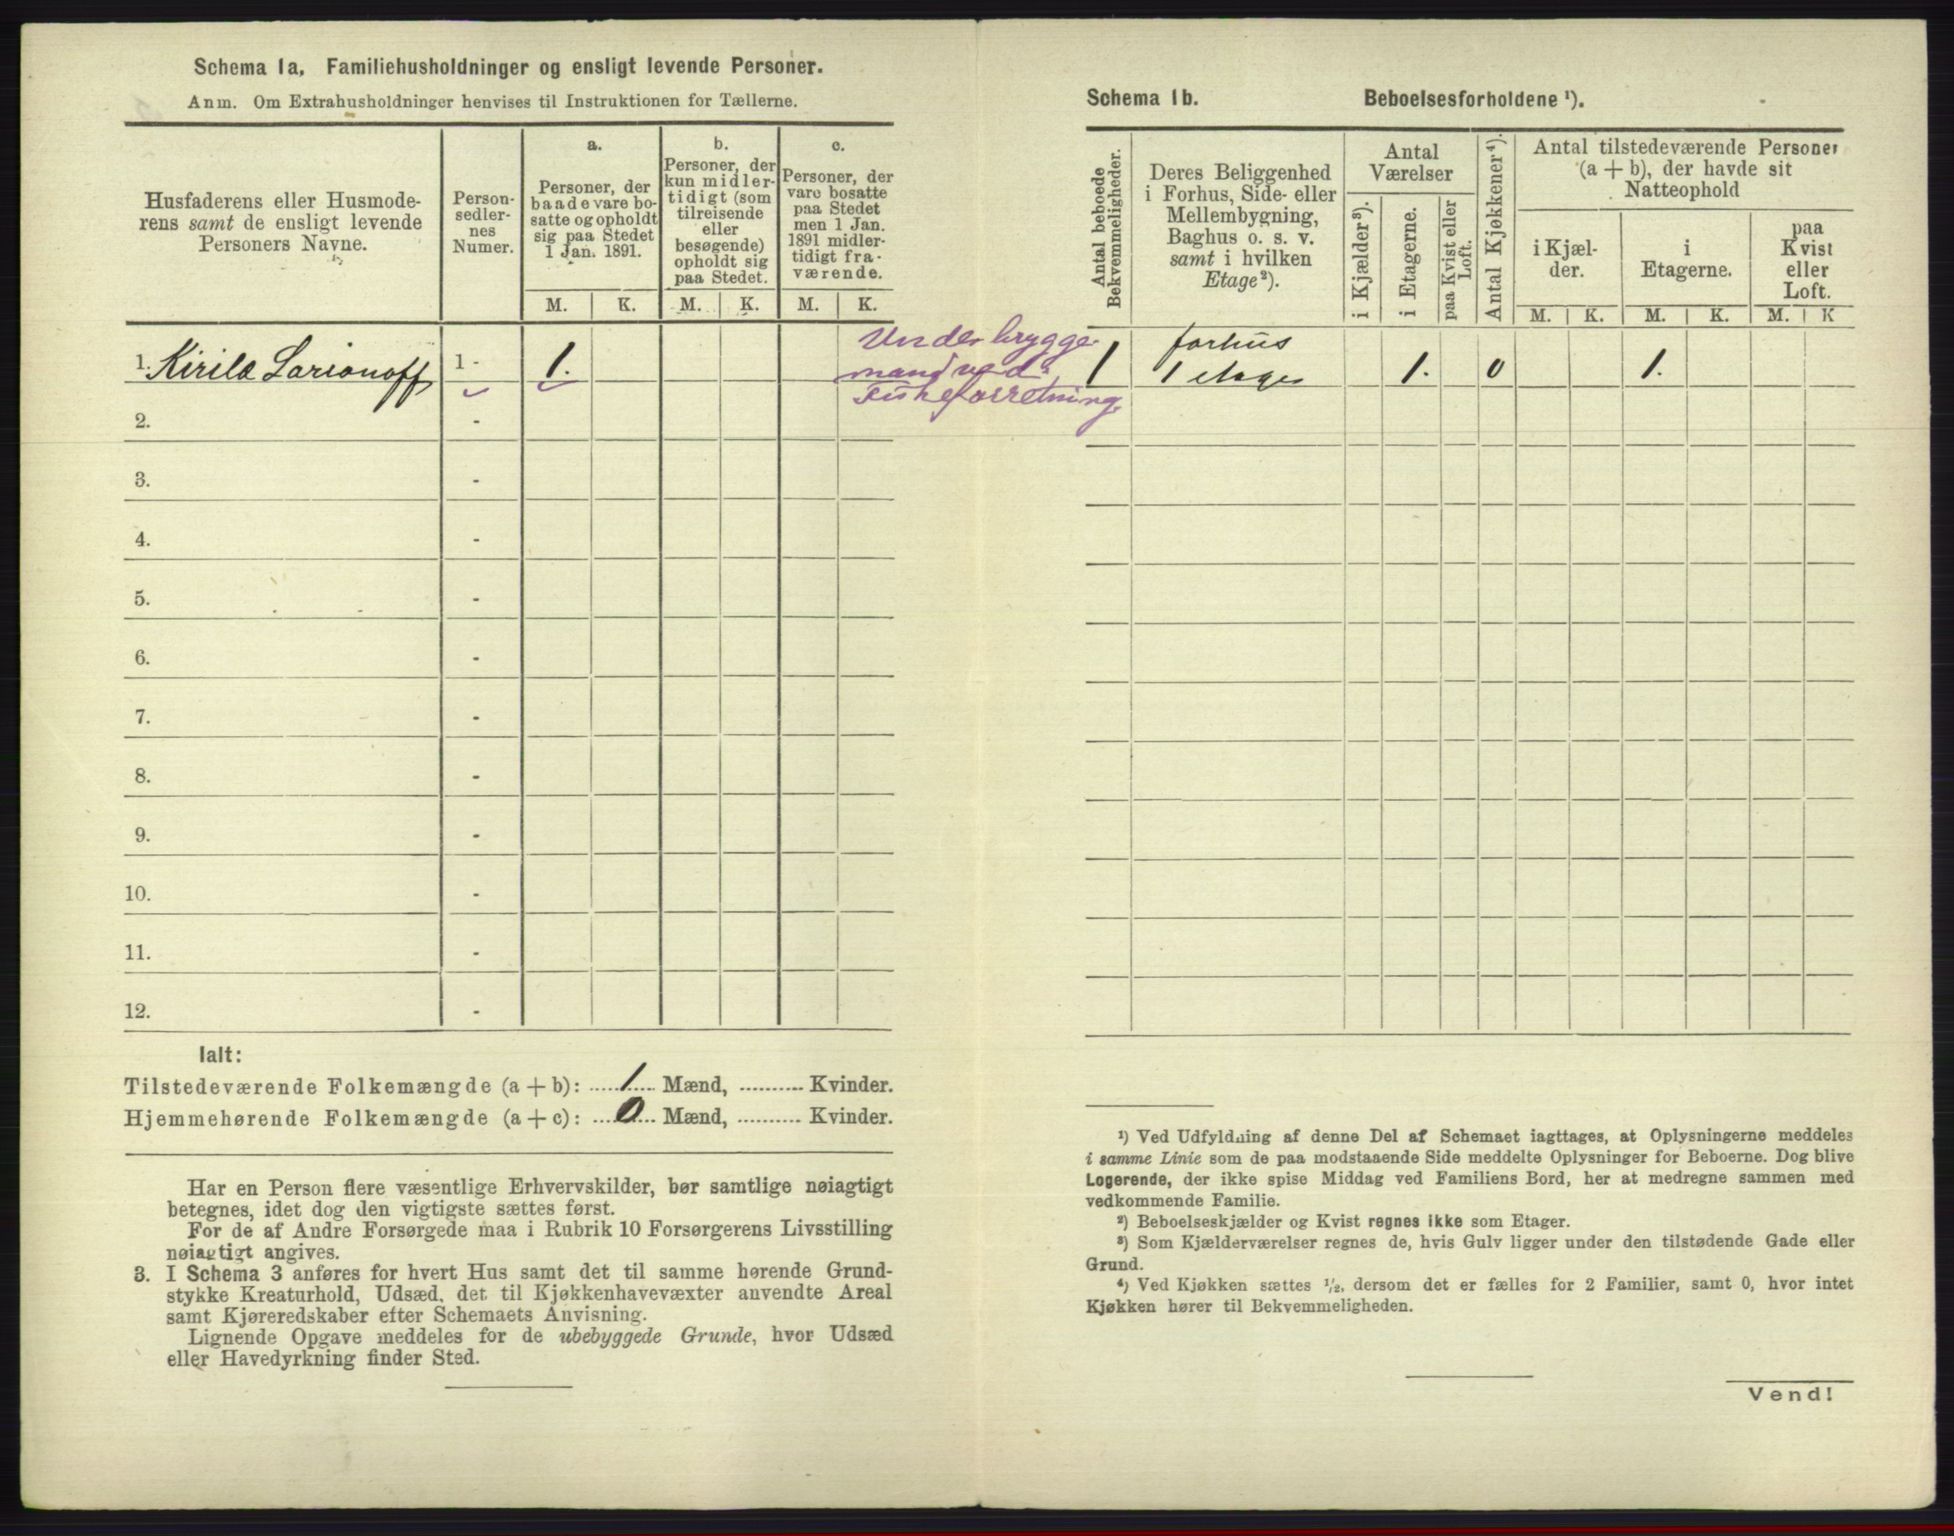 Schema 1a. Familiehusholdninger og ensligt levende Personer.
Anm. Om Extrahusholdninger henvises til Instruktionen for Tællerne.
Husfaderens eller Husmode-
rens samt de ensligt levende
Personers Navne.
Person-
sedler-
nes
Numer.
a.
Personer, der
baade vare bo-
satte og opholdt
sig paa Stedet
1 Jan. 1891.
b.
Personer, der
kun midler-
tidigt (som
tilreisende
eller
besøgende)
opholdt sig
paa Stedet.
c.
Personer, der
vare bosatte
paa Stedet
men 1 Jan.
1891 midler-
tidigt fra-
værende.
M. K. M. K. M. K.
1. Kirile Larionoff 1 - 1.
Underbrygge
mand ved
Fiskeforretning
2. -
3. -
4. -
5. -
6. -
7. -
8. -
9. -
10. -
11. -
12. -
Ialt:
Tilstedeværende Folkemængde (a + b): 1 Mænd, .......... Kvinder.
Hjemmehørende Folkemængde (a + c): 0 Mænd, .......... Kvinder.
Har en Person flere væsentlige Erhvervskilder, bør samtlige nøiagtigt
betegnes, idet dog den vigtigste sættes først.
For de af Andre Forsørgede maa i Rubrik 10 Forsørgerens Livsstilling
nøiagtigt angives.
3. I Schema 3 anføres for hvert Hus samt det til samme hørende Grund-
stykke Kreaturhold, Udsæd, det til Kjøkkenhavevæxter anvendte Areal
samt Kjøreredskaber efter Schemaets Anvisning.
Lignende Opgave meddeles for de ubebyggede Grunde, hvor Udsæd
eller Havedyrkning finder Sted.
Schema 1b. Beboelsesforholdene ¹).
Antal beboede
Bekvemmeligheder.
Deres Beliggenhed
i Forhus, Side- eller
Mellembygning,
Baghus o. s. v.
samt i hvilken
Etage²).
Antal
Værelser
i Kjælder³).
i Etagerne.
paa Kvist eller
Loft.
Antal Kjøkkener⁴).
Antal tilstedeværende Personer
(a + b), der havde sit
Natteophold
i Kjæl-
der.
i
Etagerne.
paa
Kvist
eller
Loft.
M. K. M. K. M. K
1 forhus
1 etages 1. 0 1.
¹) Ved Udfyldning af denne Del af Schemaet iagttages, at Oplysningerne meddeles
i samme Linie som de paa modstaaende Side meddelte Oplysninger for Beboerne. Dog blive
Logerende, der ikke spise Middag ved Familiens Bord, her at medregne sammen med
vedkommende Familie.
²) Beboelseskjælder og Kvist regnes ikke som Etager.
³) Som Kjælderværelser regnes de, hvis Gulv ligger under den tilstødende Gade eller
Grund.
⁴) Ved Kjøkken sættes ½, dersom det er fælles for 2 Familier, samt 0, hvor intet
Kjøkken hører til Bekvemmeligheden.
Vend!